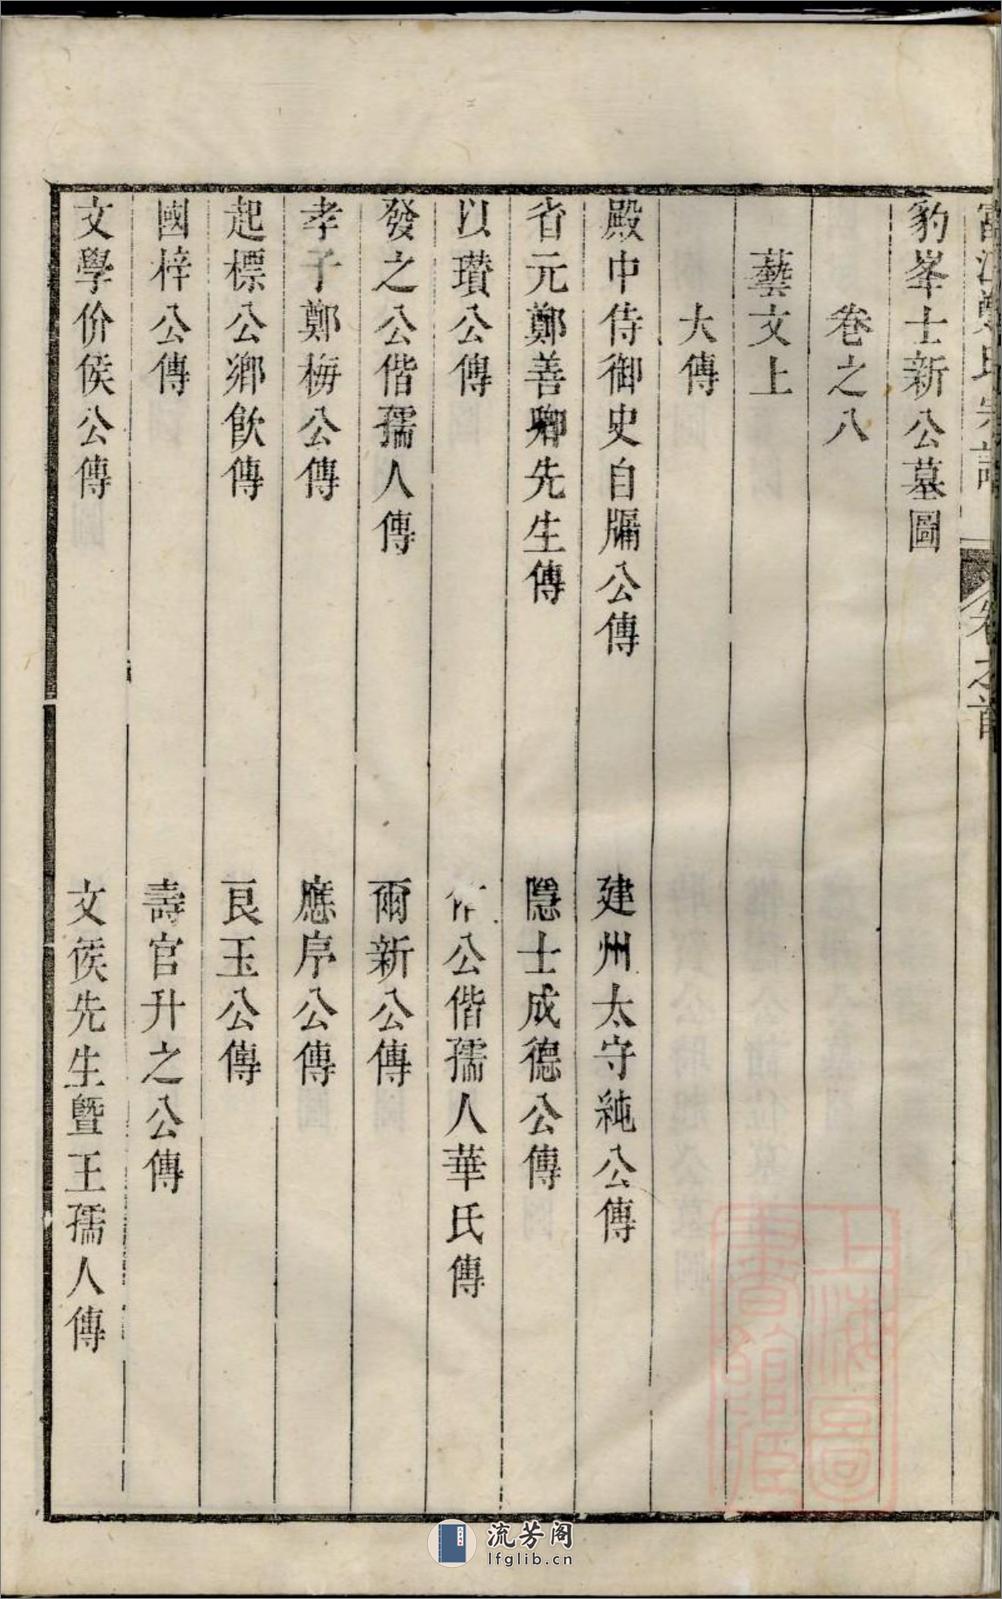 富江鄭氏宗譜 卷之首
豹峯士新公墓圖
卷之八
藝文上
大傳
殿中侍御史自牖公傳 建州太守純公傳
省元鄭善卿先生傳 隱士成德公傳
以瓚公傳 公偕孺人華氏傳
發之公偕孺人傳 爾新公傳
孝子鄭栴公傳 應序公傳
起標公鄉飲傳 艮玉公傳
國梓公傳 壽官升之公傳
文學价侯公傳 文侯先生暨王孺人傳
上海圖書館藏
流芳阁
lfglib.cn